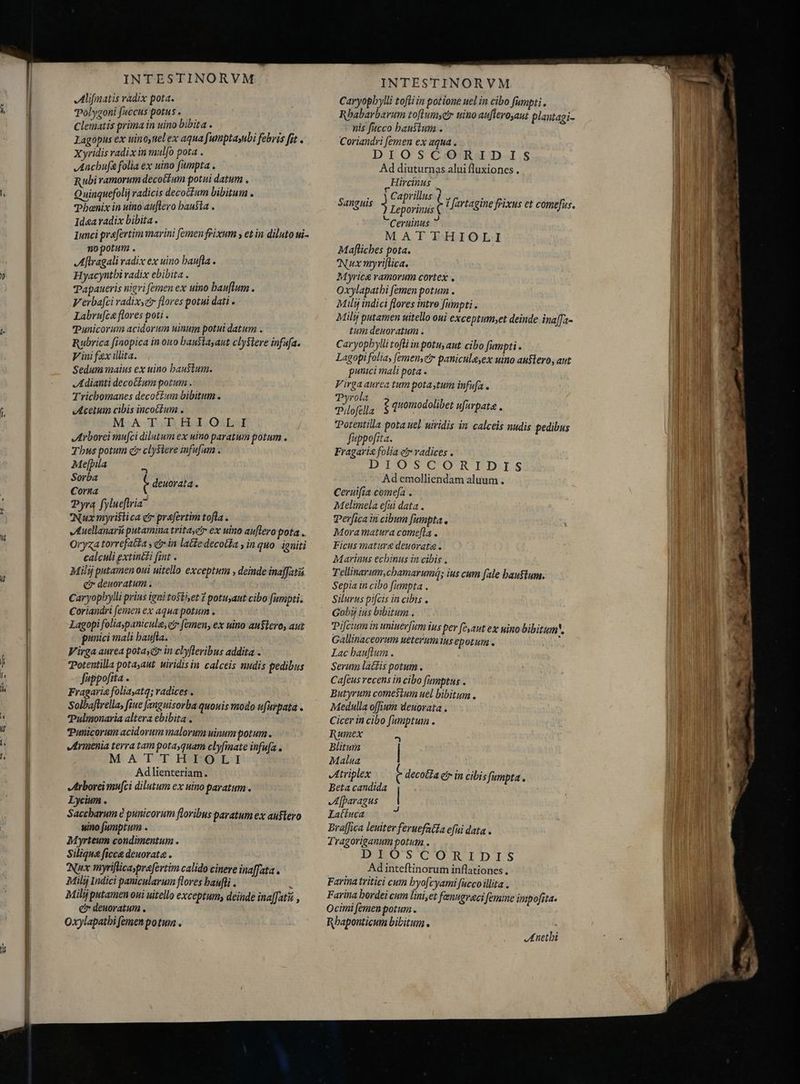 INTESTINORVM
Alismatis radix pota.
Polygoni succus potus.
Clematis prima in uino bibita.
Lagopus ex uino, uel ex aqua sumpta, ubi febris sit.
Xyridis radix in mulso pota.
Anchusæ folia ex uino sumpta.
Rubi ramorum decoctum potui datum.
Quinquefolij radicis decoctum bibitum.
Phœnix in uino austero hausta.
Idæa radix bibita.
Iunci præsertim marini semen frixum, et in diluto ui-
no potum.
Astragali radix ex uino hausta.
Hyacynthi radix ebibita.
Papaueris nigri semen ex uino haustum.
Verbasci radix, & flores potui dati.
Labruscæ flores poti.
Punicorum acidorum uinum potui datum.
Rubrica sinopica in ouo hausta, aut clystere infusa.
Vini fæx illita.
Sedum maius ex uino haustum.
Adianti decoctum potum.
Trichomanes decoctum bibitum.
Acetum cibis incoctum.
MATTHIOLI
Arborei musci dilutum ex uino paratum potum.
Thus potum & clystere infusum.
Mespila
Sorba
Corna
deuorata.
Pyra syluestria
Nux myristica & præsertim tosta.
Auellanarũ putamina trita, & ex uino austero pota.
Oryza torrefacta, & in lacte decocta, in quo igniti
calculi extincti sint.
Milij putamen oui uitello exceptum, deinde inassatũ
& deuoratum.
Caryophylli prius igni tosti, et ĩ potu, aut cibo sumpti.
Coriandri semen ex aqua potum.
Lagopi folia, paniculæ, & semen, ex uino austero, aut
punici mali hausta.
Virga aurea pota, & in clysteribus addita.
Potentilla pota, aut uiridis in calceis nudis pedibus
supposita.
Fragariæ folia, atq; radices.
Solbastrella, siue sanguisorba quouis modo usurpata.
Pulmonaria altera ebibita.
Punicorum acidorum malorum uinum potum.
Armenia terra tam pota, quam clysmate infusa.
MATTHIOLI
Ad lienteriam.
Arborei musci dilutum ex uino paratum.
Lycium.
Saccharum è punicorum floribus paratum ex austero
uino sumptum.
Myrteum condimentum.
Siliquæ siccæ deuoratæ.
Nux myristica, præsertim calido cinere inassata.
Milij Indici panicularum flores hausti.
Milij putamen oui uitello exceptum, deinde inassatũ,
& deuoratum.
Oxylapathi semen potum.
INTESTINORVM
Caryophylli tosti in potione uel in cibo sumpti.
Rhabarbarum tostum, & uino austero, aut plantagi-
nis succo haustum.
Coriandri semen ex aqua.
DIOSCORIDIS
Ad diuturnas alui fluxiones.
Sanguis
Hircinus
Caprillus
Leporinus
Ceruinus
ĩ sartagine frixus et comesus.
MATTHIOLI
Mastiches pota.
Nux myristica.
Myricæ ramorum cortex.
Oxylapathi semen potum.
Milij indici flores intro sumpti.
Milij putamen uitello oui exceptum, et deinde inassa-
tum deuoratum.
Caryophylli tosti in potu, aut cibo sumpti.
Lagopi folia, semen, & paniculæ, ex uino austero, aut
punici mali pota.
Virga aurea tum pota, tum infusa.
Pyrola
Pilosella
quomodolibet usurpatæ.
Potentilla pota uel uiridis in calceis nudis pedibus
supposita.
Fragariæ folia & radices.
DIOSCORIDIS
Ad emolliendam aluum.
Ceruisia comesa.
Melimela esui data.
Persica in cibum sumpta.
Mora matura comesta.
Ficus maturæ deuoratæ.
Marinus echinus in cibis.
Tellinarum, chamarumq; ius cum sale haustum.
Sepia in cibo sumpta.
Silurus piscis in cibis.
Gobij ius bibitum.
Piscium in uniuersum ius per se, aut ex uino bibitum.
Gallinaceorum ueterum ius epotum.
Lac haustum.
Serum lactis potum.
Caseus recens in cibo sumptus.
Butyrum comestum uel bibitum.
Medulla ossium deuorata.
Cicer in cibo sumptum.
Rumex
Blitum
Malua
Atriplex
Beta candida
Asparagus
Lactuca
decocta & in cibis sumpta.
Brassica leuiter feruefacta esui data.
Tragoriganum potum.
DIOSCORIDIS
Ad intestinorum inflationes.
Farina tritici cum hyoscyami succo illita.
Farina hordei cum lini, et fœnugræci semine imposita.
Ocimi semen potum.
Rhaponticum bibitum.
Anethi